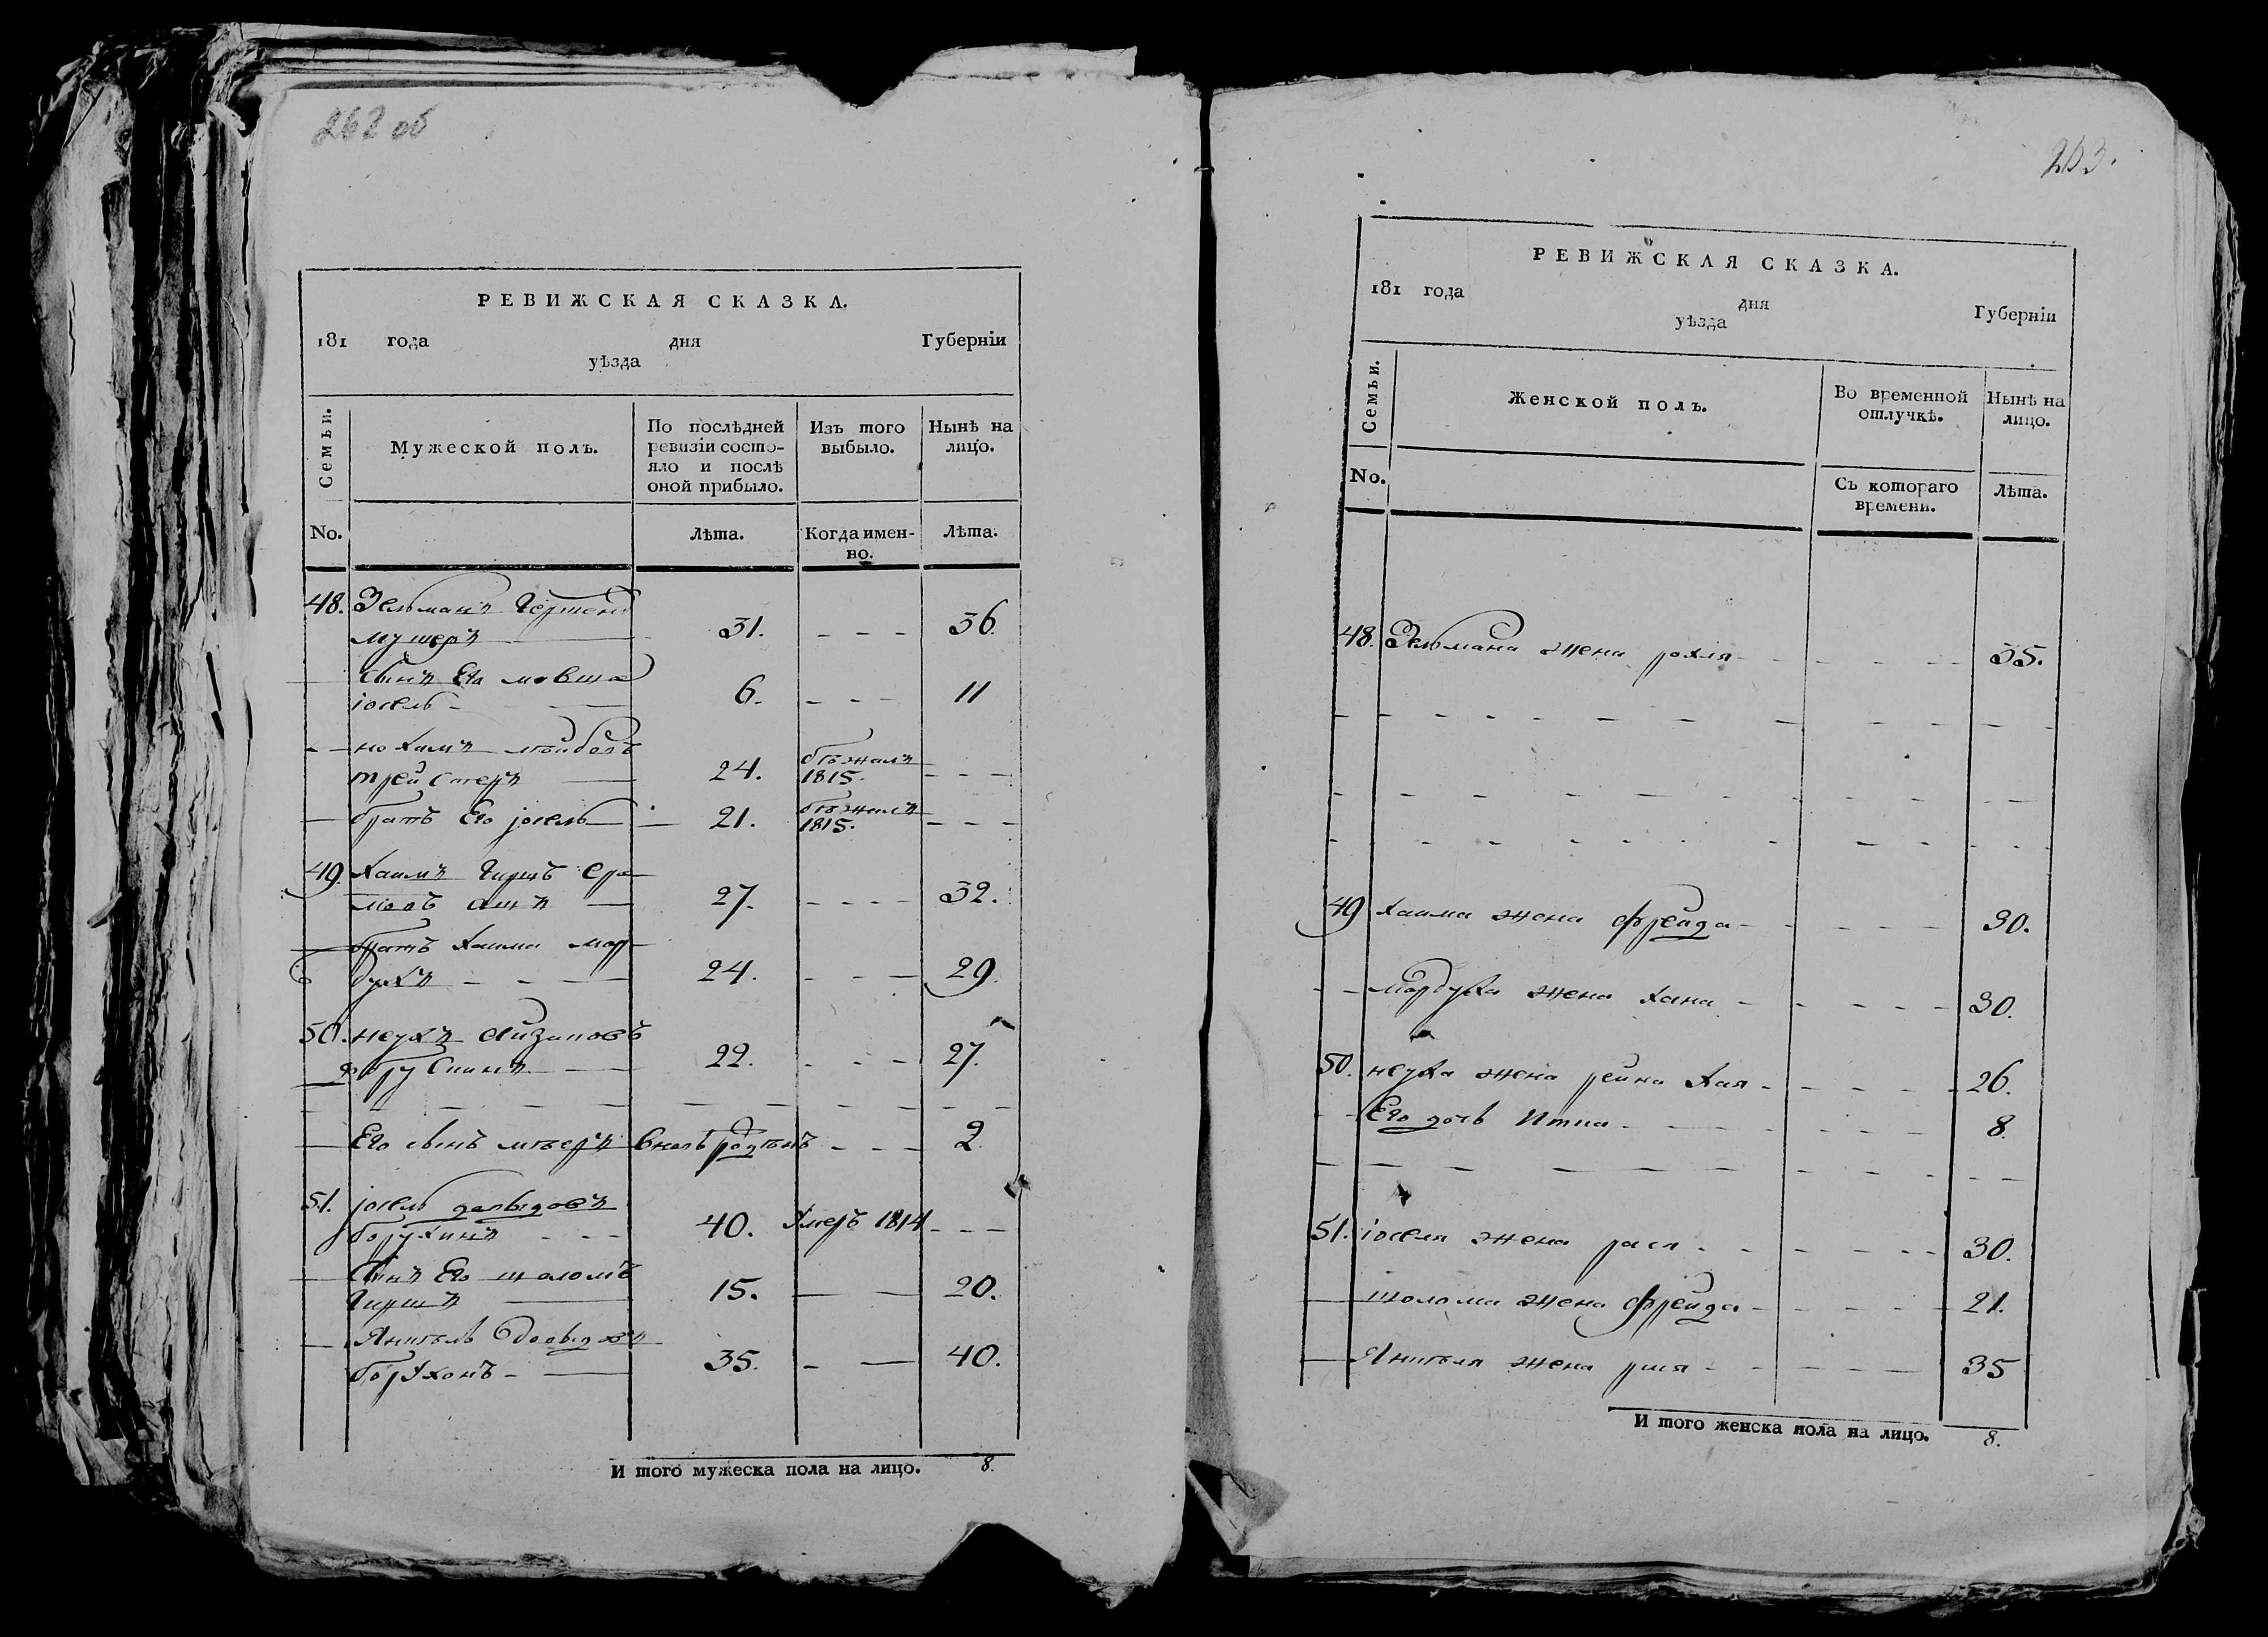 262 об
РЕВИЖСКАЯ СКАЗКА.
181 года дня Губерніи
уѣзда
Семьи.
Мужеской полъ.
По послѣдней ревизіи состо-
яло и послѣ
оной прибыло.
Изъ того
выбыло.
Нынѣ на
лицо.
No.
Лѣта.
Когда имен-
но.
Лѣта.
48. Зельманъ
31. - - - 36.
Сынъ Его мовша
іосель - 6. - - - 11
нохимъ лейбовъ
24. бѣжалъ 1815. - - -
братъ Его іосель 21. бѣжалъ 1815. - - -
49. Хаимъ Гиршъ
27. - - - - 32.
братъ Хаима мор-
духъ - - - 24. - - - 29.
50. неухъ Айзиковъ
22. - - - 27.
Его сынъ меєръ вновь рожденъ - - - 2
51. іосель давыдовъ
борухинъ - - - 40. Умеръ 1814 - - -
Сынъ Его шоломъ
Гиршъ 15. — — 20.
Янкель Давыдовъ
борухонъ - — 35. - — 40.
И того мужеска пола на лицо. 8.
263.
РЕВИЖСКАЯ СКАЗКА.
181 года дня Губерніи
уѣзда
Семьи.
Женской полъ.
Во временной
отлучкѣ.
Нынѣ на
лицо.
No.
Съ котораго
времени.
Лѣта.
48. Зельмана жена рохля 35.
49 Хаима жена фрейда 30.
мордуха жена хана 30.
50. неуха жена рейна Хая 26.
Его дочь Итка 8.
51. іоселя жена рася 30.
шолома жена фрейда 21.
Янкеля жена 35
И того женска пола на лицо. 8.